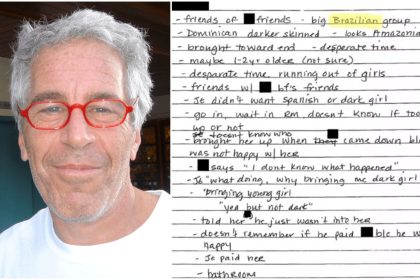 - friends of friends - big Brazilian group
- Dominican darker skinned - looks Amazonia
- brought toward end - desperate time
- maybe 1-2yr older (not sure)
- desparate time. running out of girls
- friends w/ bf's friends
- Je didn't want Spanish or dark girl
- go in, wait in RM, doesn't know if too
up or not
- brought her up when came down
was not happy w/ her
- says "I dont know what happened"
- Je "what doing, why bringing me dark girl
- "bringing young girl
"yea but not dark"
- told her he just wasn't into her
- doesn't remember if he paid b/c he w
happy
- Je paid her
- bathroom